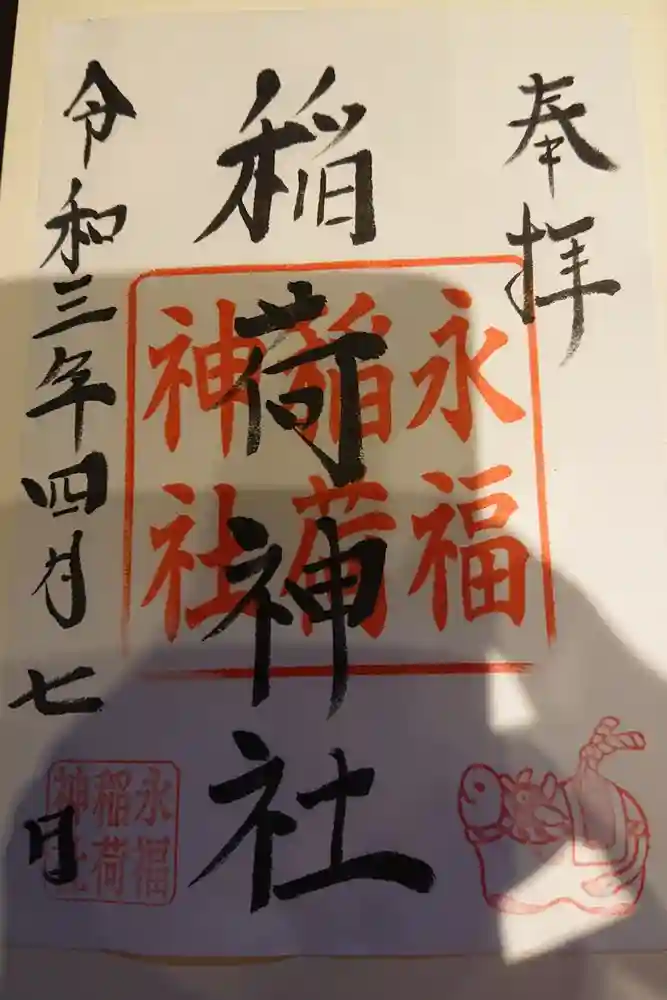 奉拝
稲荷神社
永福
稲荷
神社
令和三年四月七日
永福
稲荷
神社